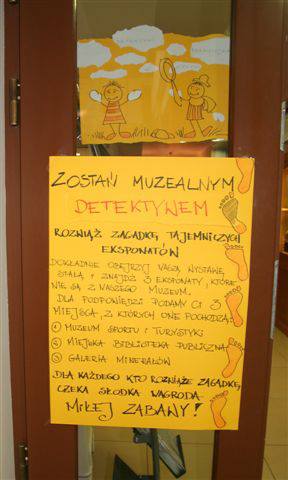 ZOSTAŃ MUZEALNYM
DETEKTYWEM
ROZWIĄŻ ZAGADKĘ TAJEMNICZYCH
EKSPONATÓW
DOKŁADNIE OBEJRZYJ NASZĄ WYSTAWĘ
STAŁĄ I ZNAJDŹ 3 EKSPONATY, KTÓRE
NIE SĄ Z NASZEGO MUZEUM.
DLA PODPOWIEDZI PODAMY CI 3
MIEJSCA, Z KTÓRYCH ONE POCHODZĄ:
① MUZEUM SPORTU I TURYSTYKI
② MIEJSKA BIBLIOTEKA PUBLICZNA
③ GALERIA MINERAŁÓW
DLA KAŻDEGO KTO ROZWIĄŻE ZAGADKĘ,
CZEKA SŁODKA NAGRODA.
MIŁEJ ZABAWY!